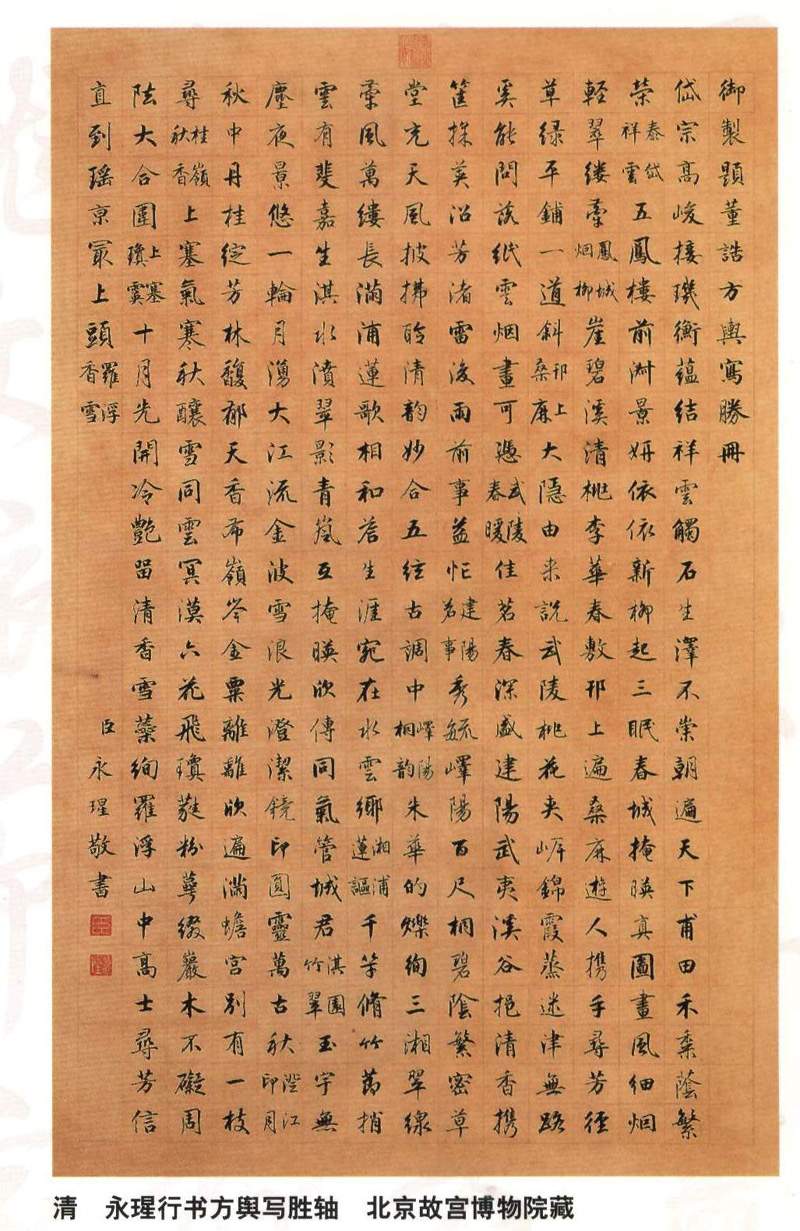 御製題董誥方輿寫勝冊
岱宗高峻接璣衡蘊結祥雲觸石生澤不崇朝遍天下甫田禾黍蔭繁
榮泰岱祥雲五鳳樓前淑景妍依依新柳起三眠春城掩暎真圖畫風細烟
輕翠縷牽鳳城烟柳崖碧溪清桃李華春敷邗上遍桑麻遊人携手尋芳徑
草綠平鋪一道斜邗上桑麻大隱由来說武陵桃花夾岸錦霞蒸迷津無路
奚能問設紙雲烟畫可憑武陵春暖佳茗春深盛建陽武夷溪谷挹清香携
筐採英沿芳渚雷後雨前事益忙建陽茗事秀毓嶧陽百尺桐碧陰繁密草
堂充天風披拂聆清韵妙合五絃古調中嶧陽桐韵朱華的爍絢三湘翠線
牽風萬縷長滿浦蓮歌相和答生涯宛在水雲鄉湘浦蓮謳千竿脩竹蔚捎
雲有斐嘉生淇水濆翠影青嵐互掩暎欣傳同氣管城君淇園竹翠玉宇無
塵夜景悠一輪月湧大江流金波雪浪光澄潔鏡印圓靈萬古秋澄江印月
秋中丹桂綻芳林馥郁天香布嶺岑金粟離離欣遍滿蟾宮別有一枝
尋桂嶺秋香上塞氣寒秋釀雪同雲冥漠六花飛瓊蕤粉萼綴巖木不礙周
阹大合圍上塞瓊霙十月先開冷艷留清香雪蘂絢羅浮山中高士尋芳信
直到瑤京最上頭羅浮香雪
臣永瑆敬書
清 永瑆行书方舆写胜轴 北京故宫博物院藏